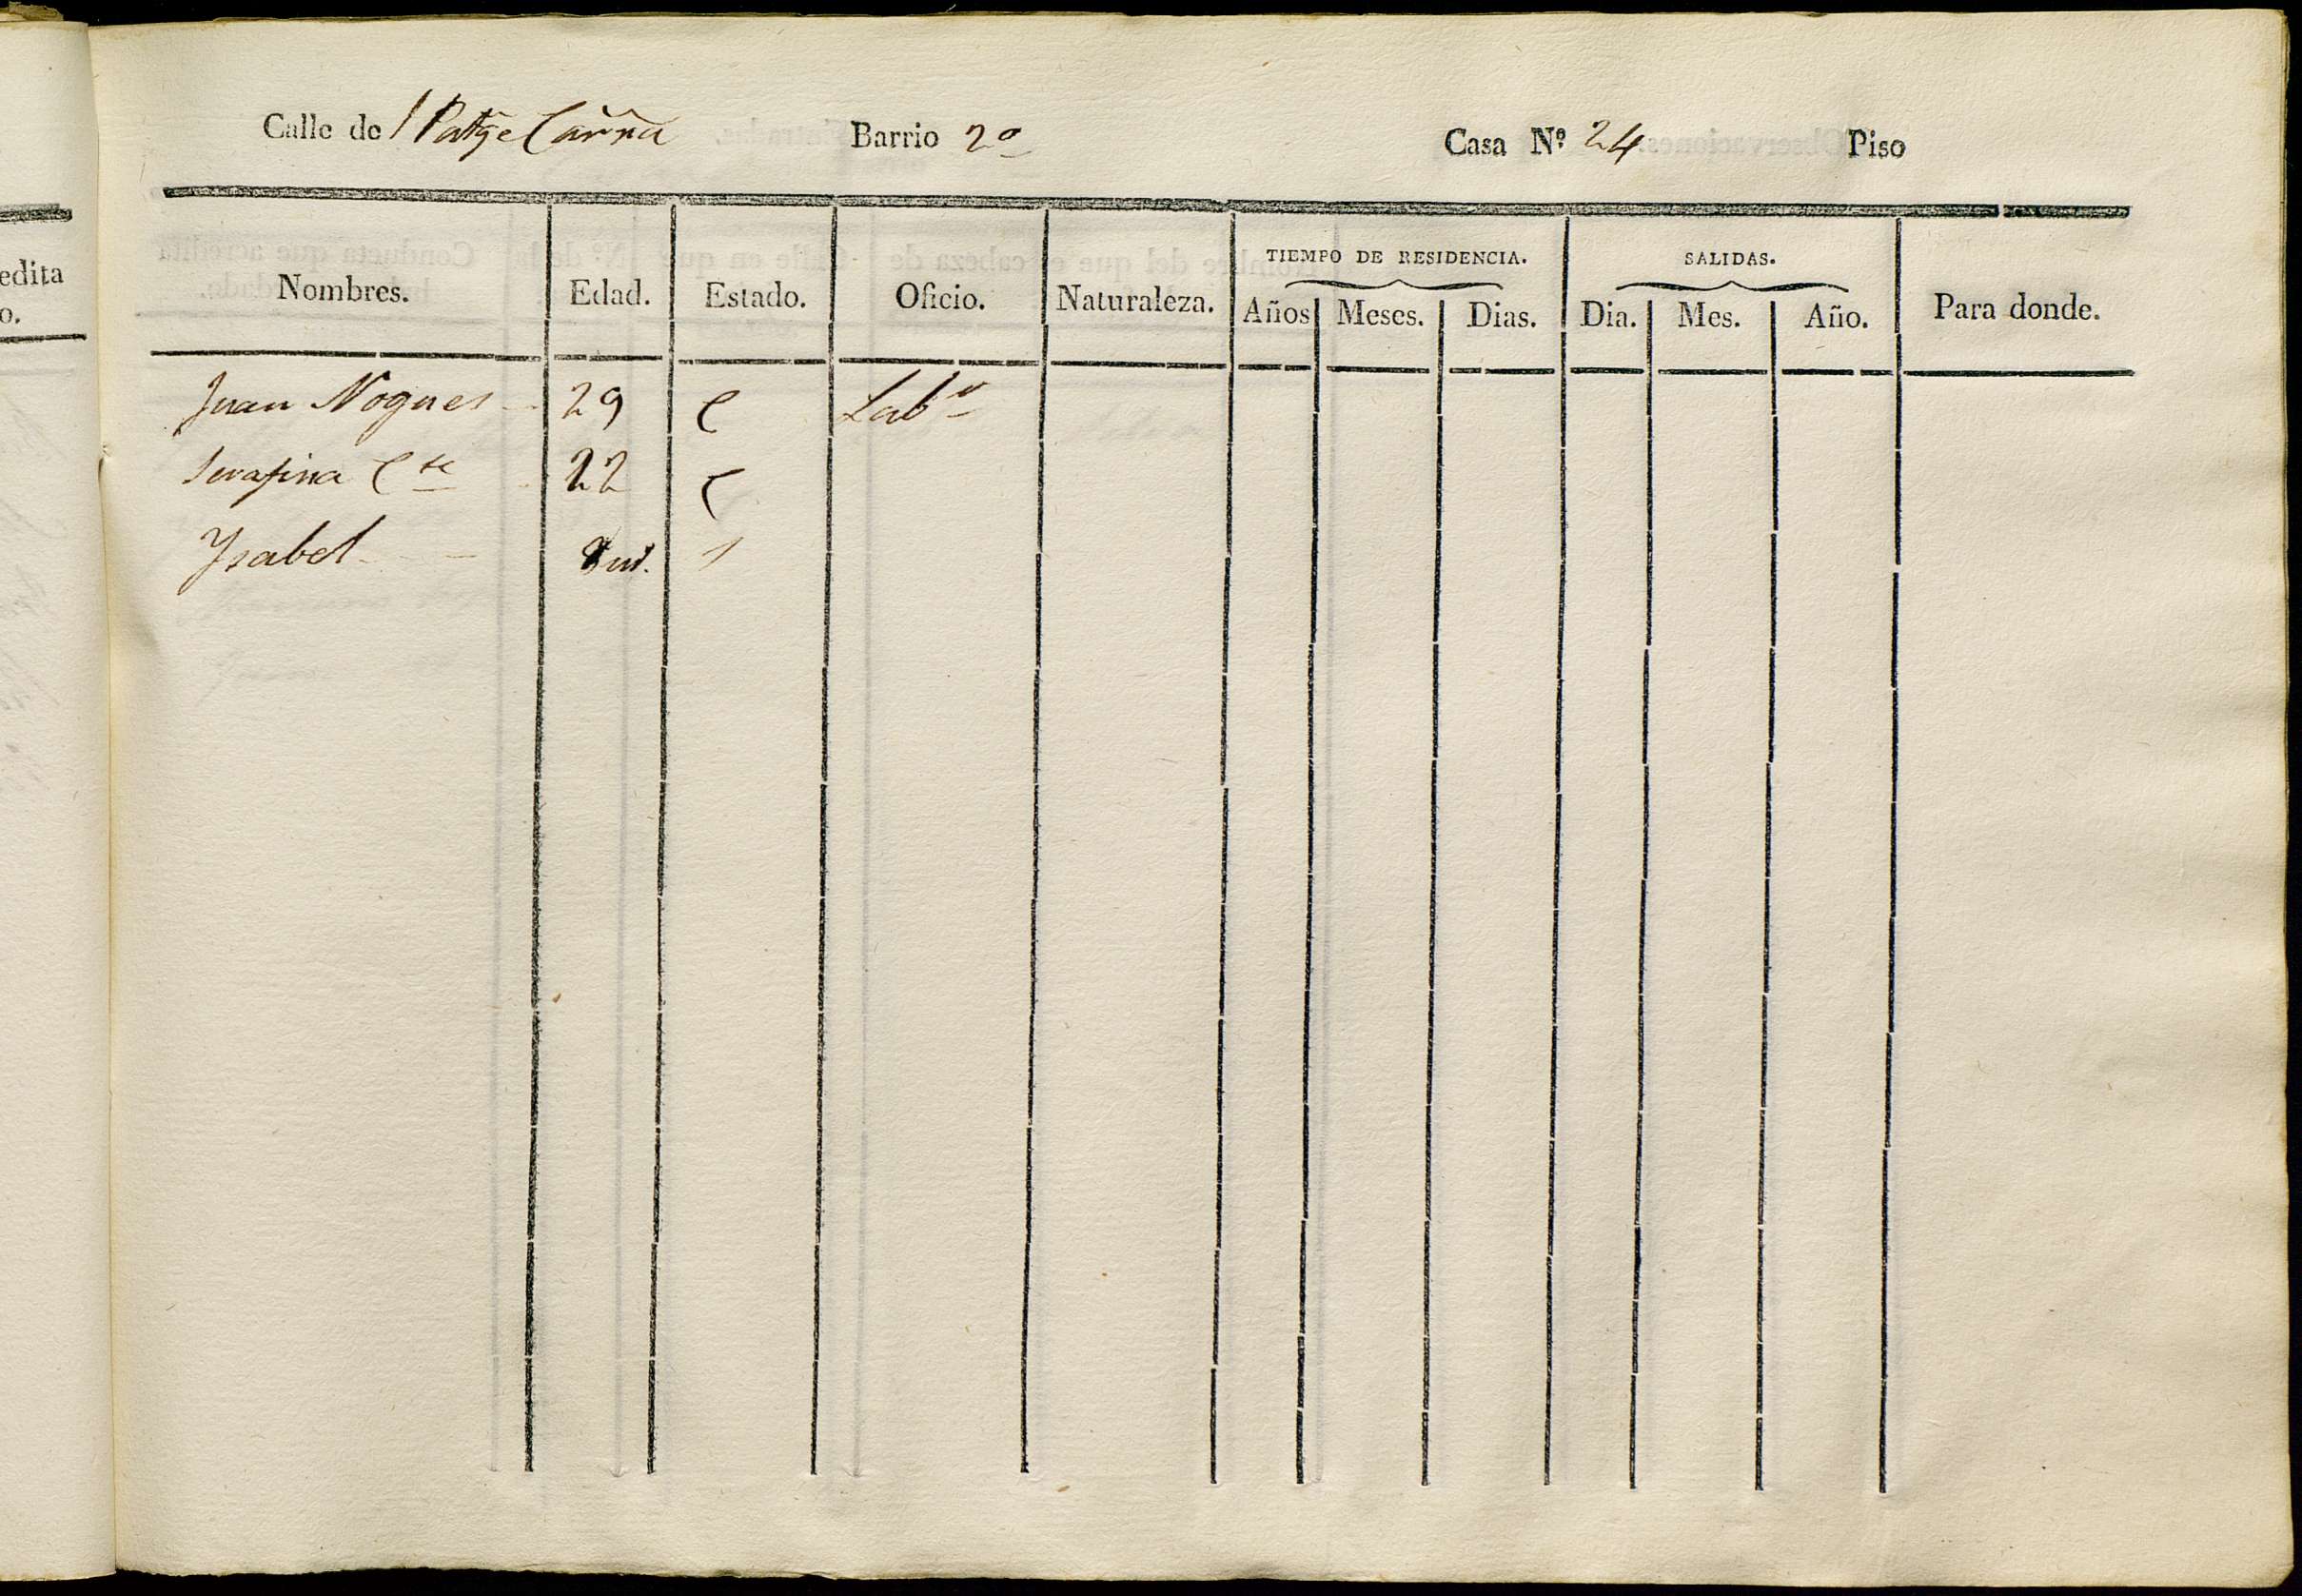 edita
o.
Calle de Barrio 2º Casa Nº 24 Piso
Nombres. Edad. Estado. Oficio. Naturaleza. TIEMPO DE RESIDENCIA. Años Meses. Dias. SALIDAS. Dia. Mes. Año. Para donde.
Juan Nogues 29 C Labr
Serafina Cte 22 C
Ysabel